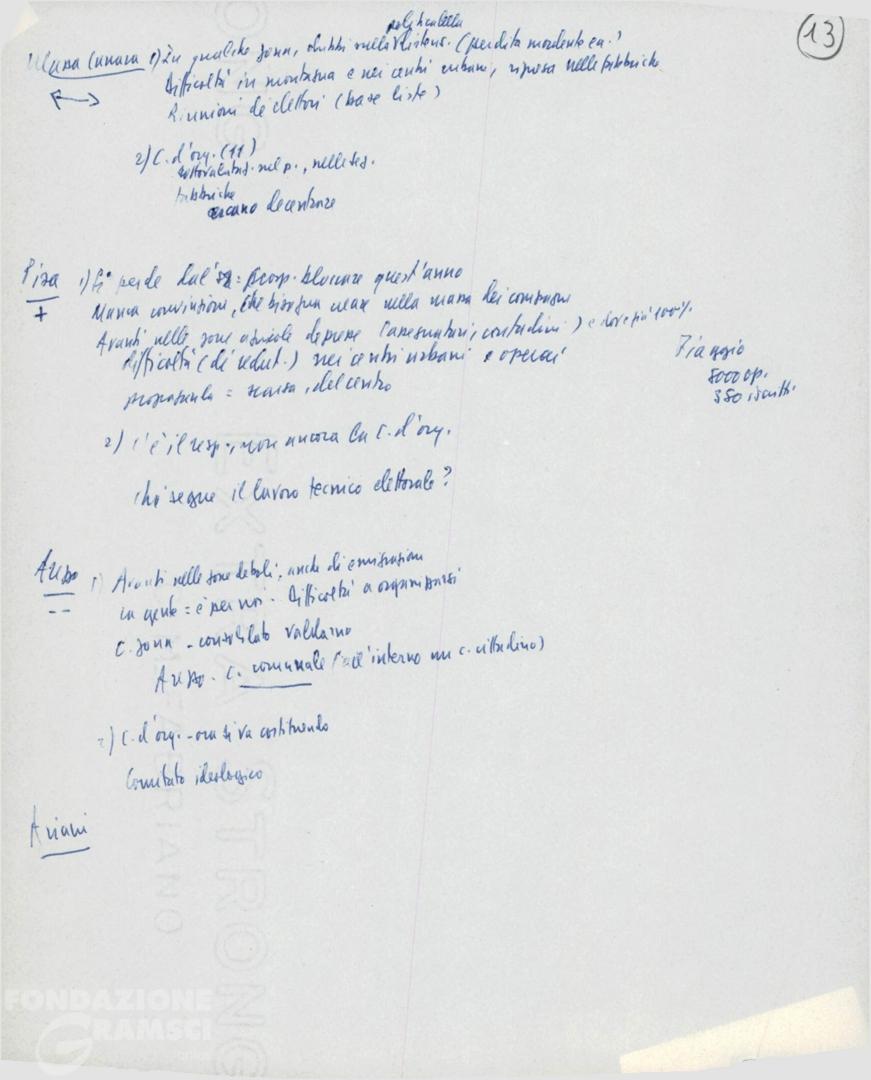 13
politica della
Massa Carrara 1) In qualche zona, dubbi sulla
(perdita mordente ca.?
Difficoltà in montagna e nei centri urbani, ripresa nelle fabbriche
Riunioni di elettori (base liste)
2) C. d'org. (11)
sottovalutaz. nel p., nelle sez.
fabbriche
decentrare
Pisa 1) Si perde dal prosp. bloccare quest'anno
+ Manca convinzione, che bisogna creare nella massa dei compagni
Avanti nelle zone agricole depresse (assegnatari, contadini) e dove più 100%
difficoltà (di reclut.) nei centri urbani e operai
propaganda = scarsa, del centro
Piaggio
5000 op.
350 iscritti.
2) c'è il resp., non ancora la C. d'org.
chi segue il lavoro tecnico elettorale?
Arezzo 1) Avanti nelle zone deboli, anche di emigrazione
-- la gente = è per noi - Difficoltà a organizzarsi
C. zona - consolidato Valdarno
Arezzo - C. comunale (all'interno un c. cittadino)
2) C. d'org. - ora si va costituendo
Comitato ideologico
Ariani
FONDAZIONE
GRAMSCI
EXTRA STRONG
FABRIANO